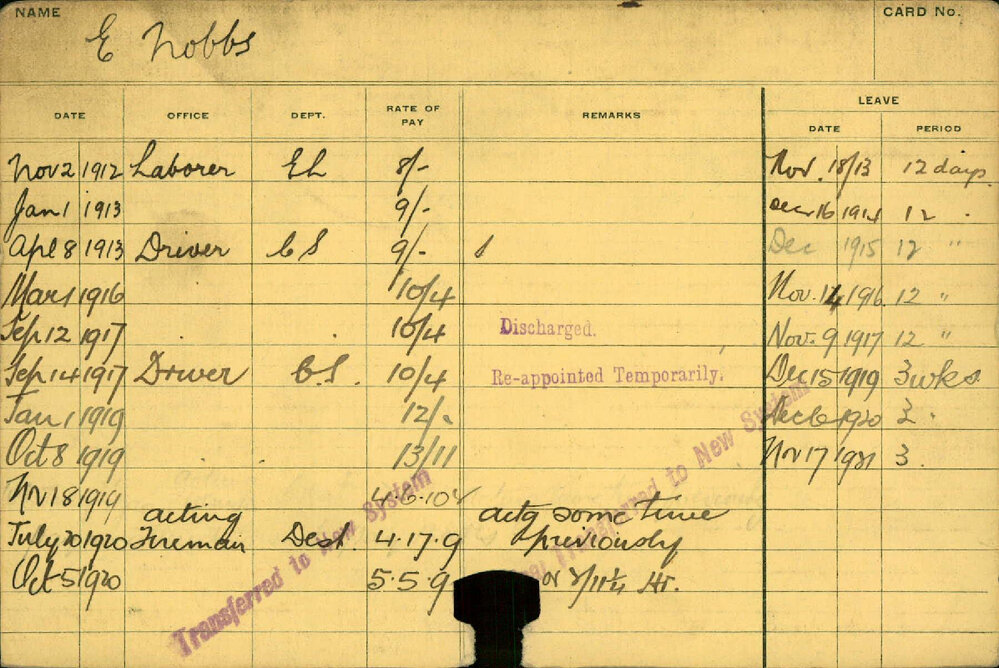 NAME
CARD No.
E Nobbs
DATE OFFICE DEPT. RATE OF PAY REMARKS LEAVE
DATE PERIOD
Nov 2 1912 Laborer EL 8/- Nov. 18/13 12 days
Jan 1 1913 9/- Dec 16 1914 12 "
Apl 8 1913 Driver CS 9/- Dec 1915 12 "
Mar 1 1916 10/4 Nov. 14 1916 12 "
Sep 12 1917 10/4 Discharged. Nov. 9 1917 12 "
Sep 14 1917 Driver C.S. 10/4 Re-appointed Temporarily. Dec 15 1919 3 wks
Jan 1 1919 12/- Dec 6 1920 3 "
Oct 8 1919 13/11 Nov 17 1921 3
Nov 18 1919 4.6.10
July 20 1920 acting Fireman Dest. 4.17.9 actg some time previously
Oct 5 1920 5.5.9 or 2/11¼ Hr.
Transferred to New System
Transferred to New System